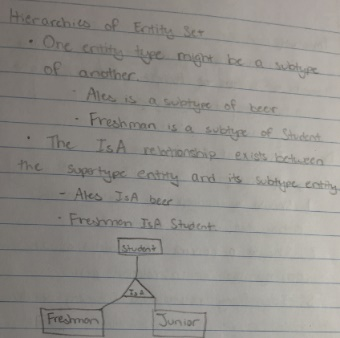 Hierarchies of Entity Set
• One entity type might be a subtype
of another
- Ales is a subtype of beer
- Freshman is a subtype of Student
• The IsA relationship exists between
the supertype entity and its subtype entity
- Ales IsA beer
- Freshman IsA Student
Student
IsA
Freshman Junior